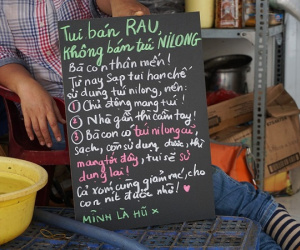 Tui bán RAU,
không bán túi NILONG
Bà con thân mến!
Từ nay Sạp tui hạn chế
sử dụng túi nilong, nên:
① Chủ động mang túi!
② Nhà gần thì cầm tay!
③ Bà con có túi nilong cũ,
sạch, còn sử dụng được, thì
mang tới đây, tui sẽ sử
dụng lại!
Cả xóm cùng giảm rác, cho
con nít được nhờ!
MÌNH LÀ HŨ